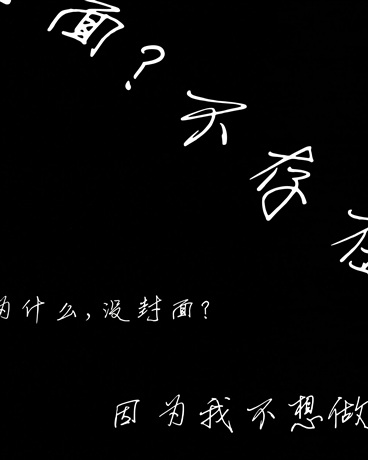 面？不存在
为什么,没封面?
因为我不想做